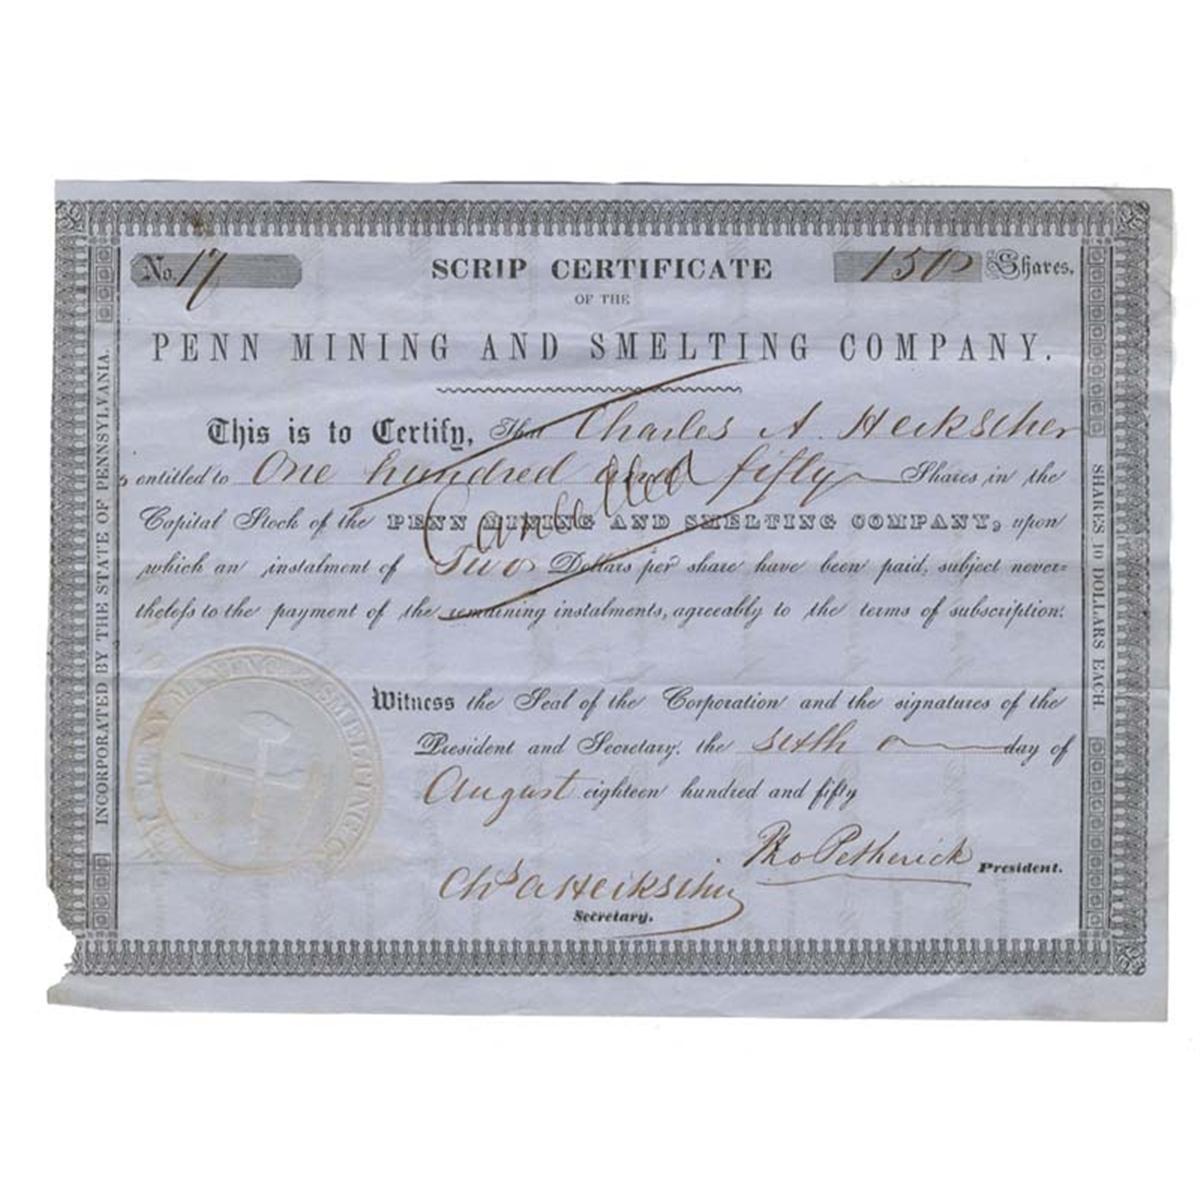 No. 17
SCRIP CERTIFICATE
150 Shares.
OF THE
PENN MINING AND SMELTING COMPANY.
This is to Certify, That Charles A. Heckscher
entitled to One hundred and fifty Shares in the
Cancelled
Capital Stock of the PENN MINING AND SMELTING COMPANY, upon
which an instalment of Two Dollars per share have been paid, subject never=
theless to the payment of the remaining instalments, agreeably to the terms of subscription.
Witness the Seal of the Corporation and the signatures of the
President and Secretary, the sixth day of
August eighteen hundred and fifty
Tho Petherick President.
Chs A Heckscher
Secretary.
INCORPORATED BY THE STATE OF PENNSYLVANIA.
SHARES 10 DOLLARS EACH.
PENN MINING & SMELTING Co